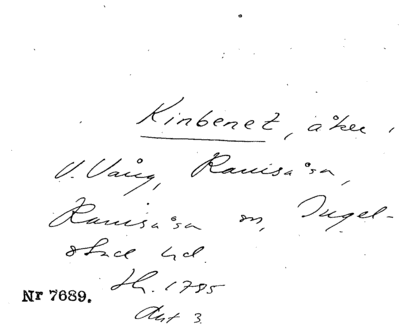 Kinbenet, åker i
V. Vång, Ramsåsa,
Ramsåsa sn, Ingel-
stad hd.
Sk. 1785
Akt 3.
Nr 7689.